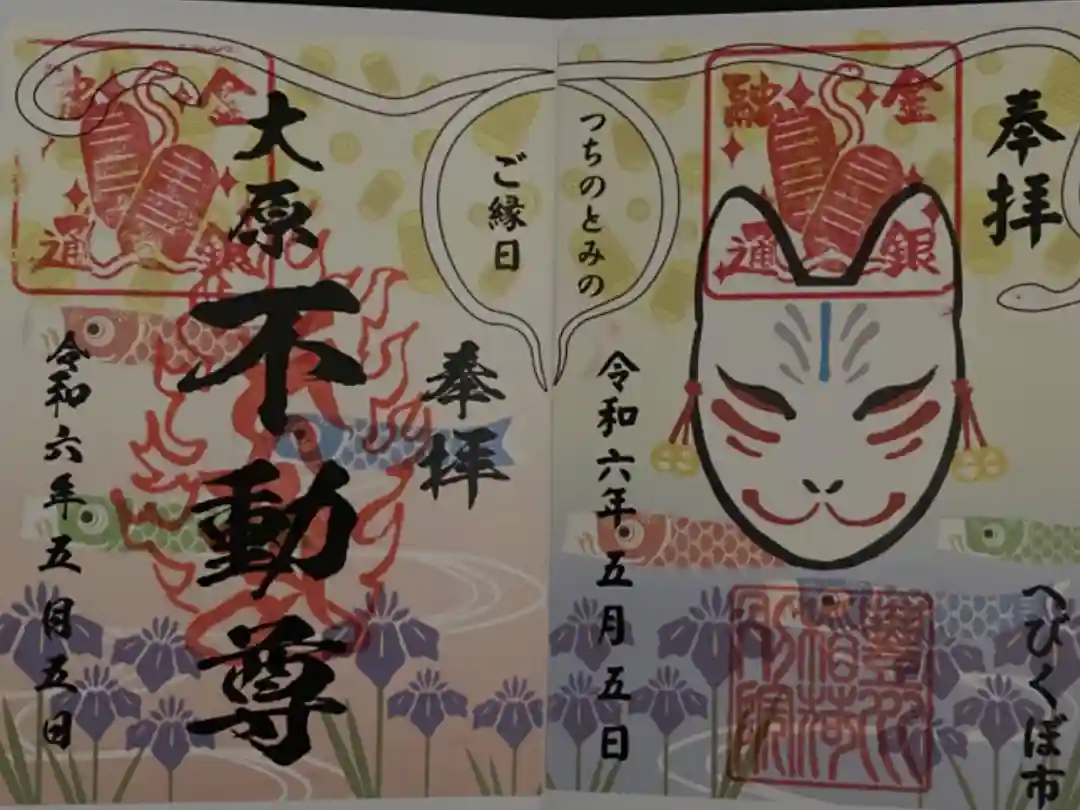 奉拝
へびくぼ市
金銀
融通
令和六年五月五日
つちのとみの
ご縁日
奉拝
大原
不動尊
金銀
融通
令和六年五月五日